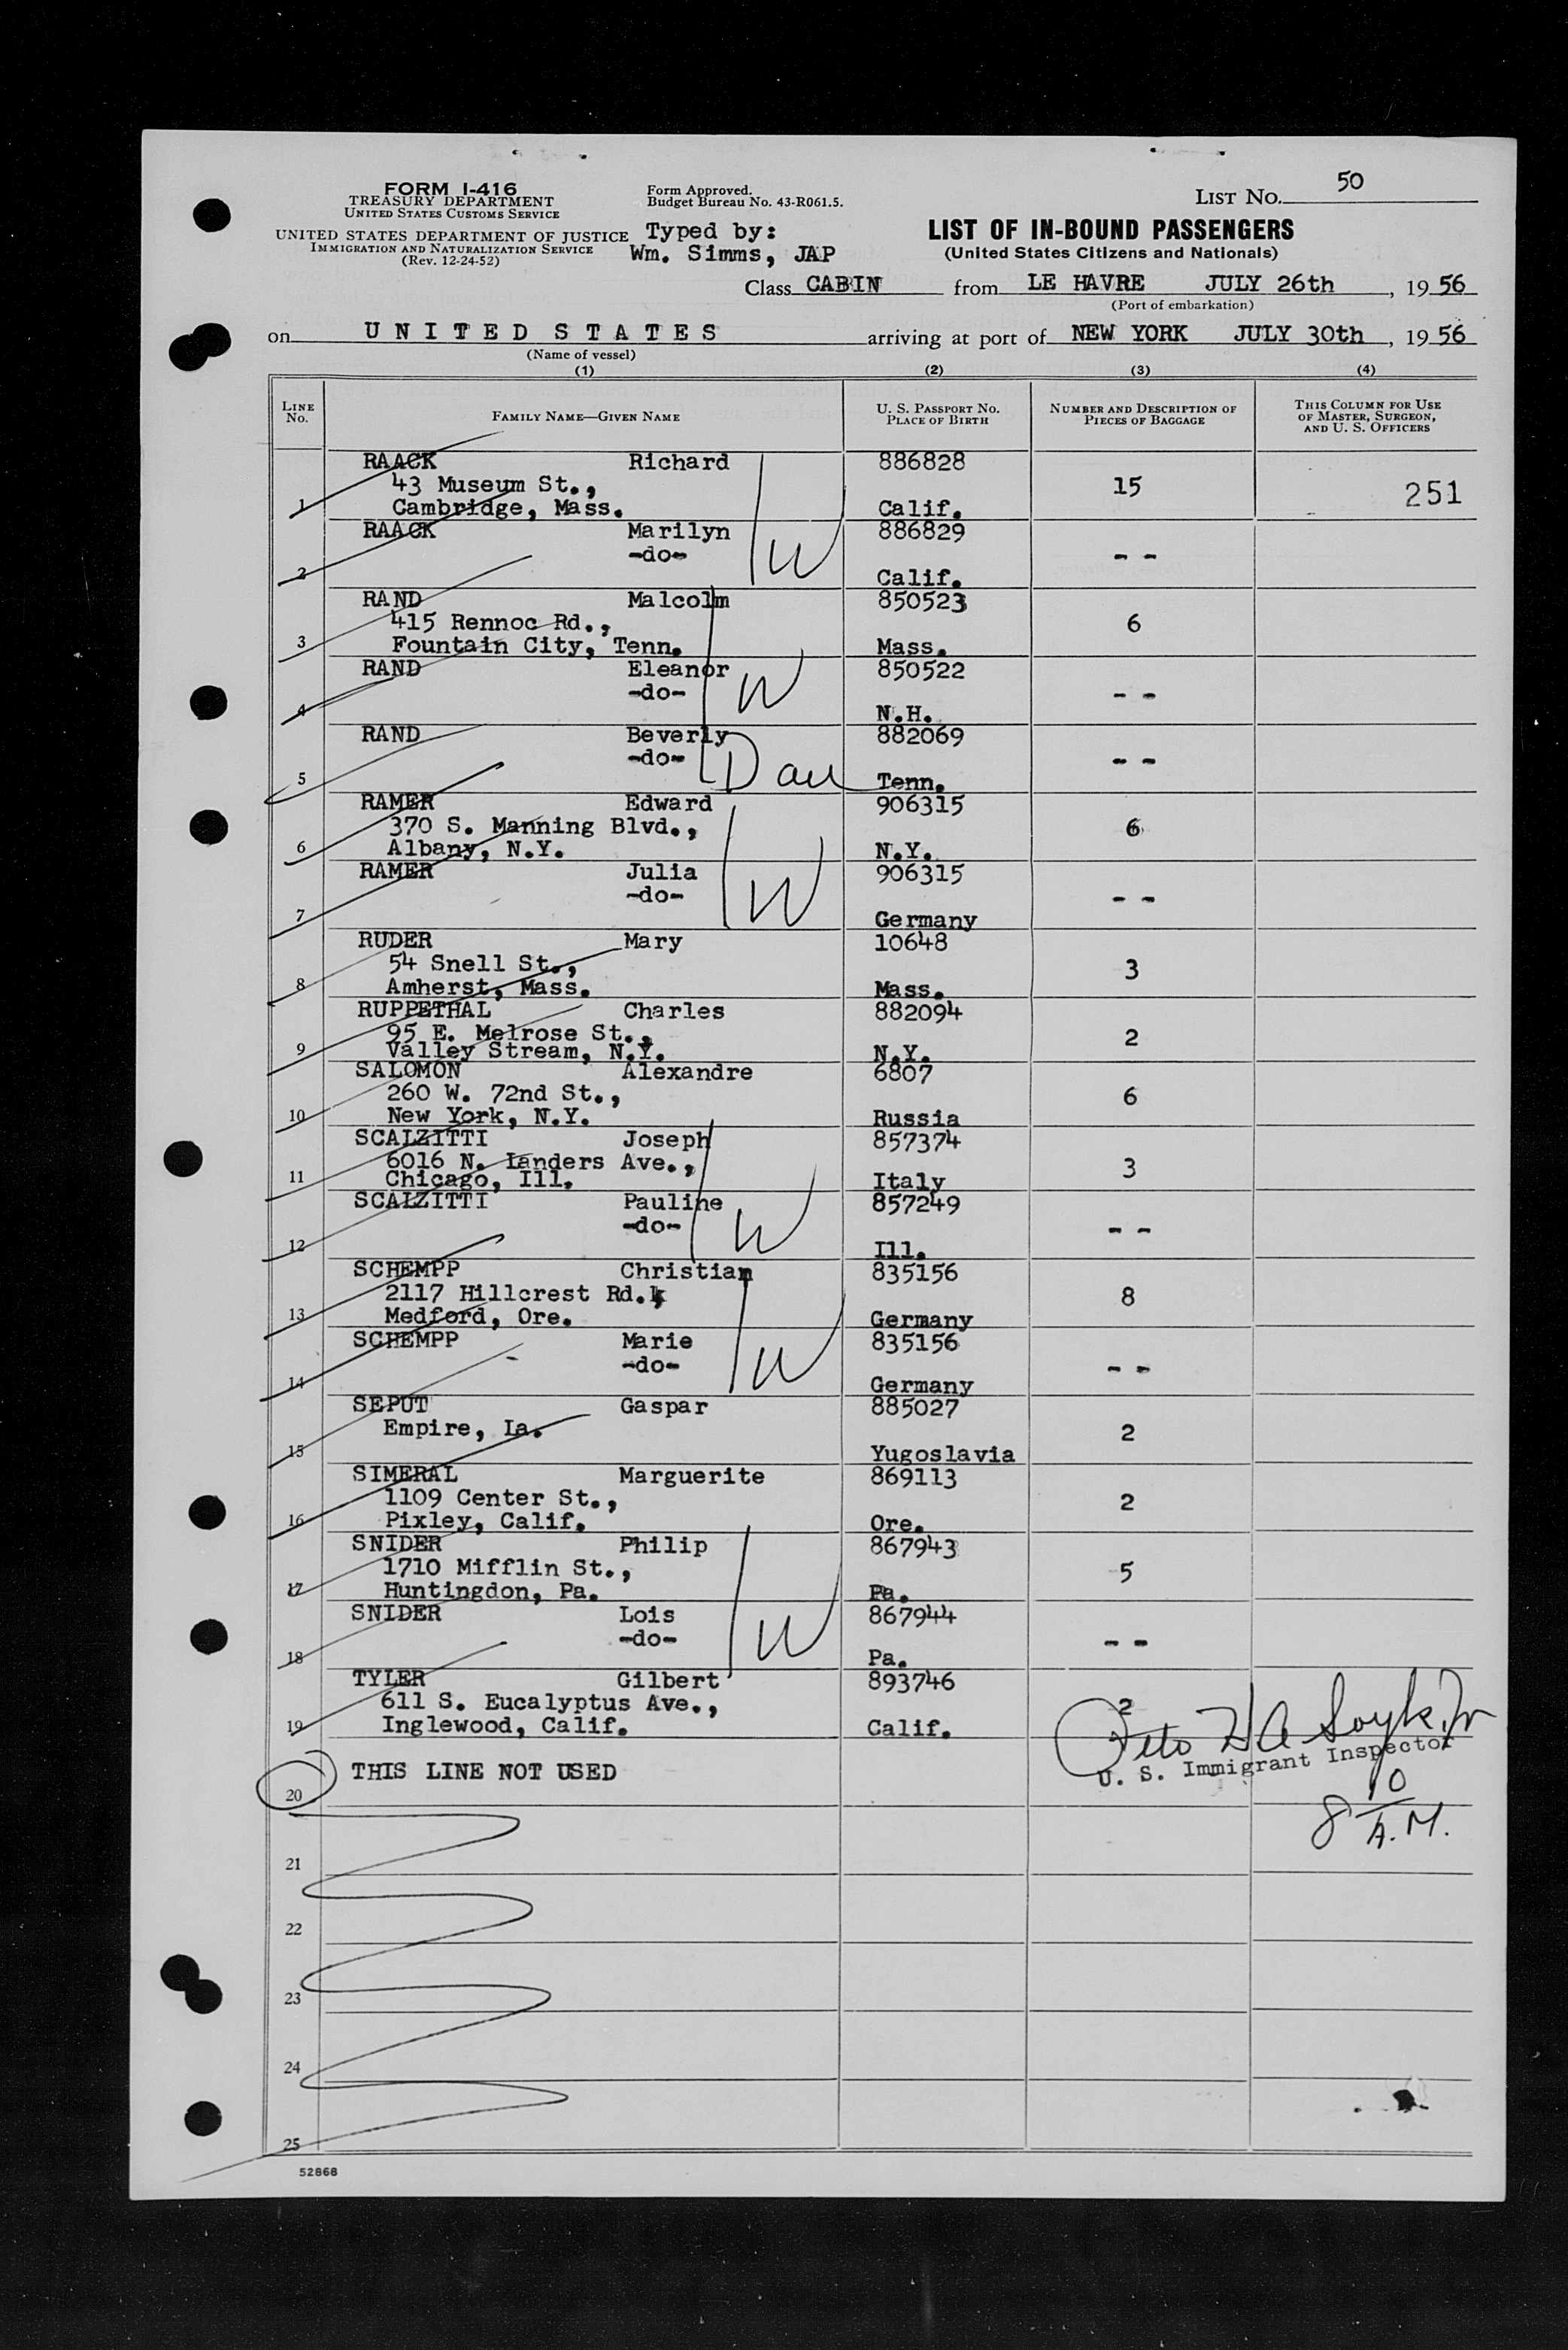 FORM I-416
TREASURY DEPARTMENT
UNITED STATES CUSTOMS SERVICE
UNITED STATES DEPARTMENT OF JUSTICE
IMMIGRATION AND NATURALIZATION SERVICE
(Rev. 12-24-52)
Form Approved.
Budget Bureau No. 43-R061.5.
Typed by:
Wm. Simms, JAP
LIST NO. 50
LIST OF IN-BOUND PASSENGERS
(United States Citizens and Nationals)
Class CABIN from LE HAVRE JULY 26th, 1956
(Port of embarkation)
on UNITED STATES arriving at port of NEW YORK JULY 30th, 1956
(Name of vessel)
(1) (2) (3) (4)
LINE NO. FAMILY NAME—GIVEN NAME U. S. PASSPORT NO. PLACE OF BIRTH NUMBER AND DESCRIPTION OF PIECES OF BAGGAGE THIS COLUMN FOR USE OF MASTER, SURGEON, AND U. S. OFFICERS
RAACK Richard 886828
43 Museum St., 15 251
1 Cambridge, Mass. Calif.
RAACK Marilyn 886829
-do- W - -
2 Calif.
RAND Malcolm 850523
415 Rennoc Rd., 6
3 Fountain City, Tenn. Mass.
RAND Eleanor 850522
-do- W - -
4 N.H.
RAND Beverly 882069
-do- Dau - -
5 Tenn.
RAMER Edward 906315
370 S. Manning Blvd., 6
6 Albany, N.Y. N.Y.
RAMER Julia 906315
-do- W - -
7 Germany
RUDER Mary 10648
54 Snell St., 3
8 Amherst, Mass. Mass.
RUPPETHAL Charles 882094
95 E. Melrose St., 2
9 Valley Stream, N.Y. N.Y.
SALOMON Alexandre 6807
260 W. 72nd St., 6
10 New York, N.Y. Russia
SCALZITTI Joseph 857374
6016 N. Landers Ave., 3
11 Chicago, Ill. Italy
SCALZITTI Pauline 857249
-do- W - -
12 Ill.
SCHEMPP Christian 835156
2117 Hillcrest Rd., 8
13 Medford, Ore. Germany
SCHEMPP Marie 835156
-do- W - -
14 Germany
SEPUT Gaspar 885027
Empire, La. 2
15 Yugoslavia
SIMERAL Marguerite 869113
1109 Center St., 2
16 Pixley, Calif. Ore.
SNIDER Philip 867943
1710 Mifflin St., 5
17 Huntingdon, Pa. Pa.
SNIDER Lois 867944
-do- W - -
18 Pa.
TYLER Gilbert 893746
611 S. Eucalyptus Ave., 2
19 Inglewood, Calif. Calif.
THIS LINE NOT USED
U. S. Immigrant Inspector
20
8 10 A.M.
21
22
23
24
25
52868